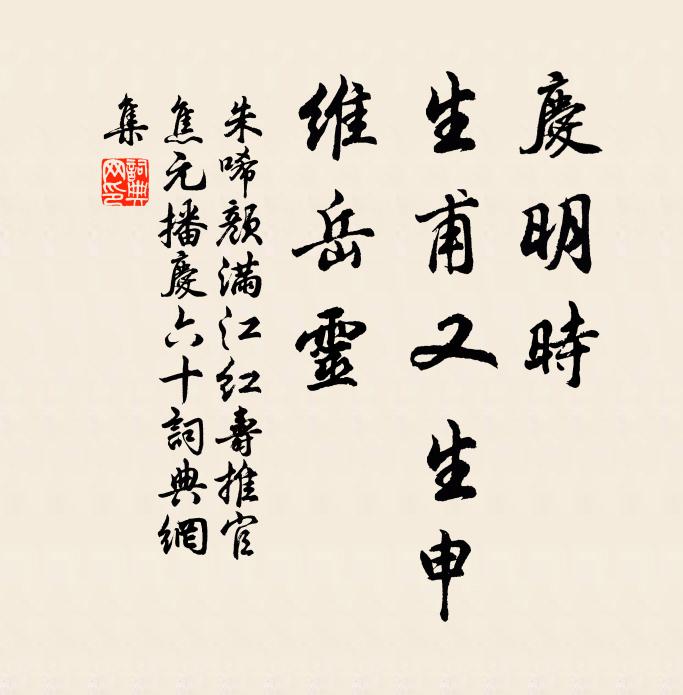 慶明時
生甫又生申
維岳靈
朱唏顏滿江紅壽推官
焦元播慶六十詞典網
集
詞典網印